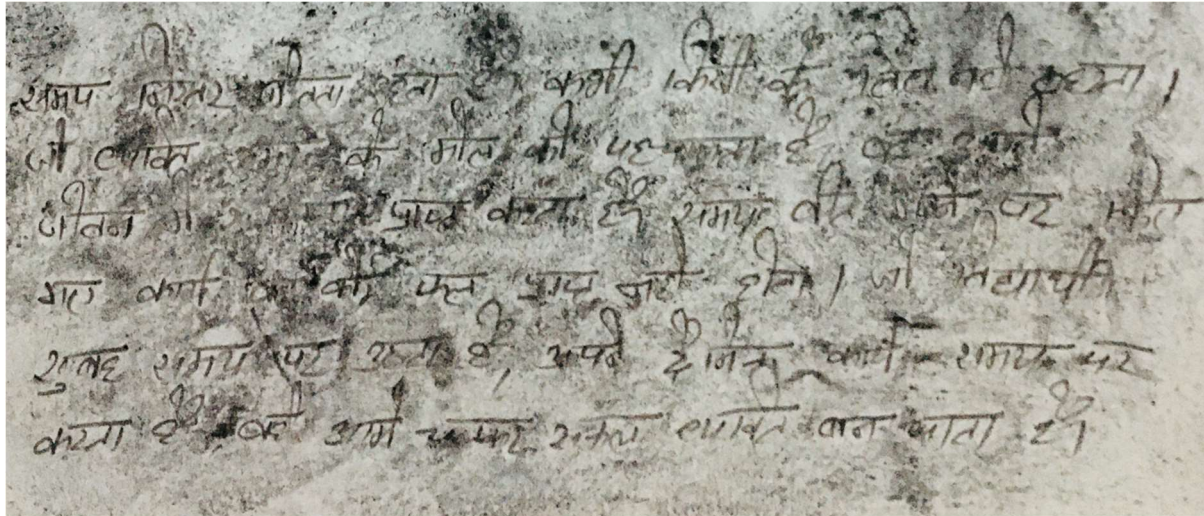 समय निरंतर बीतता रहता है, कभी किसी के लिए नहीं ठहरता।
जो व्यक्ति समय के मोल को पहचानता है, वह अपने
जीवन में प्राप्त करता है। समय बीत जाने पर किए
गए कार्य का कोई फल प्राप्त नहीं होता। जो विद्यार्थी
सुबह समय पर उठता है, अपने दैनिक कार्य समय पर
करता है, वही आगे चलकर सफल व्यक्ति बन जाता है।